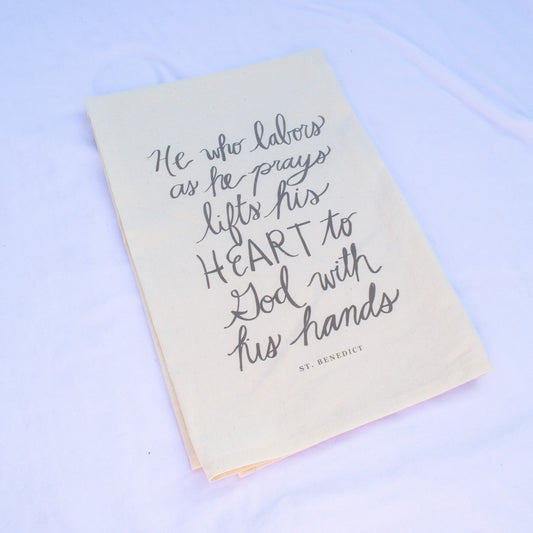 He who labors
as he prays
lifts his
HEART to
God with
his hands
ST. BENEDICT